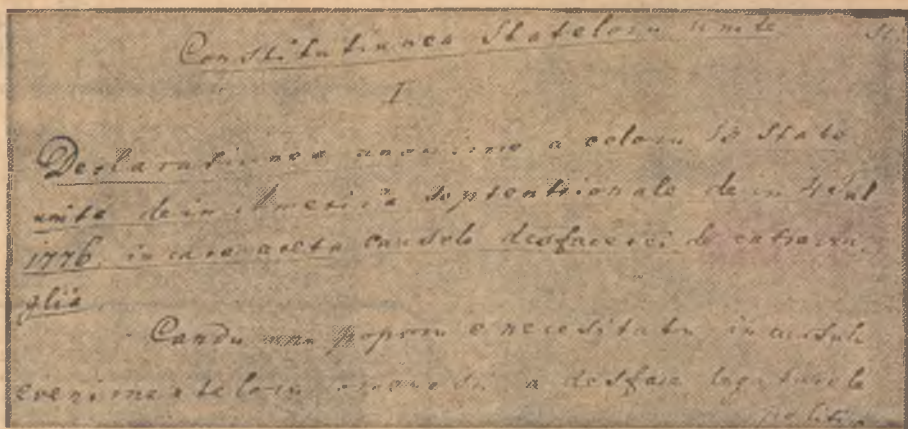 Constitutiunea Stateloru unite
I
Declaratiunea unanime a celoru 13 State
unite dein America septentrionale de in 4 Iul
1776, in care causele desfacerei de catra
glia
Candu unu poporu e necesitatu in cursulu
evenimenteloru a desface legaturele
politice